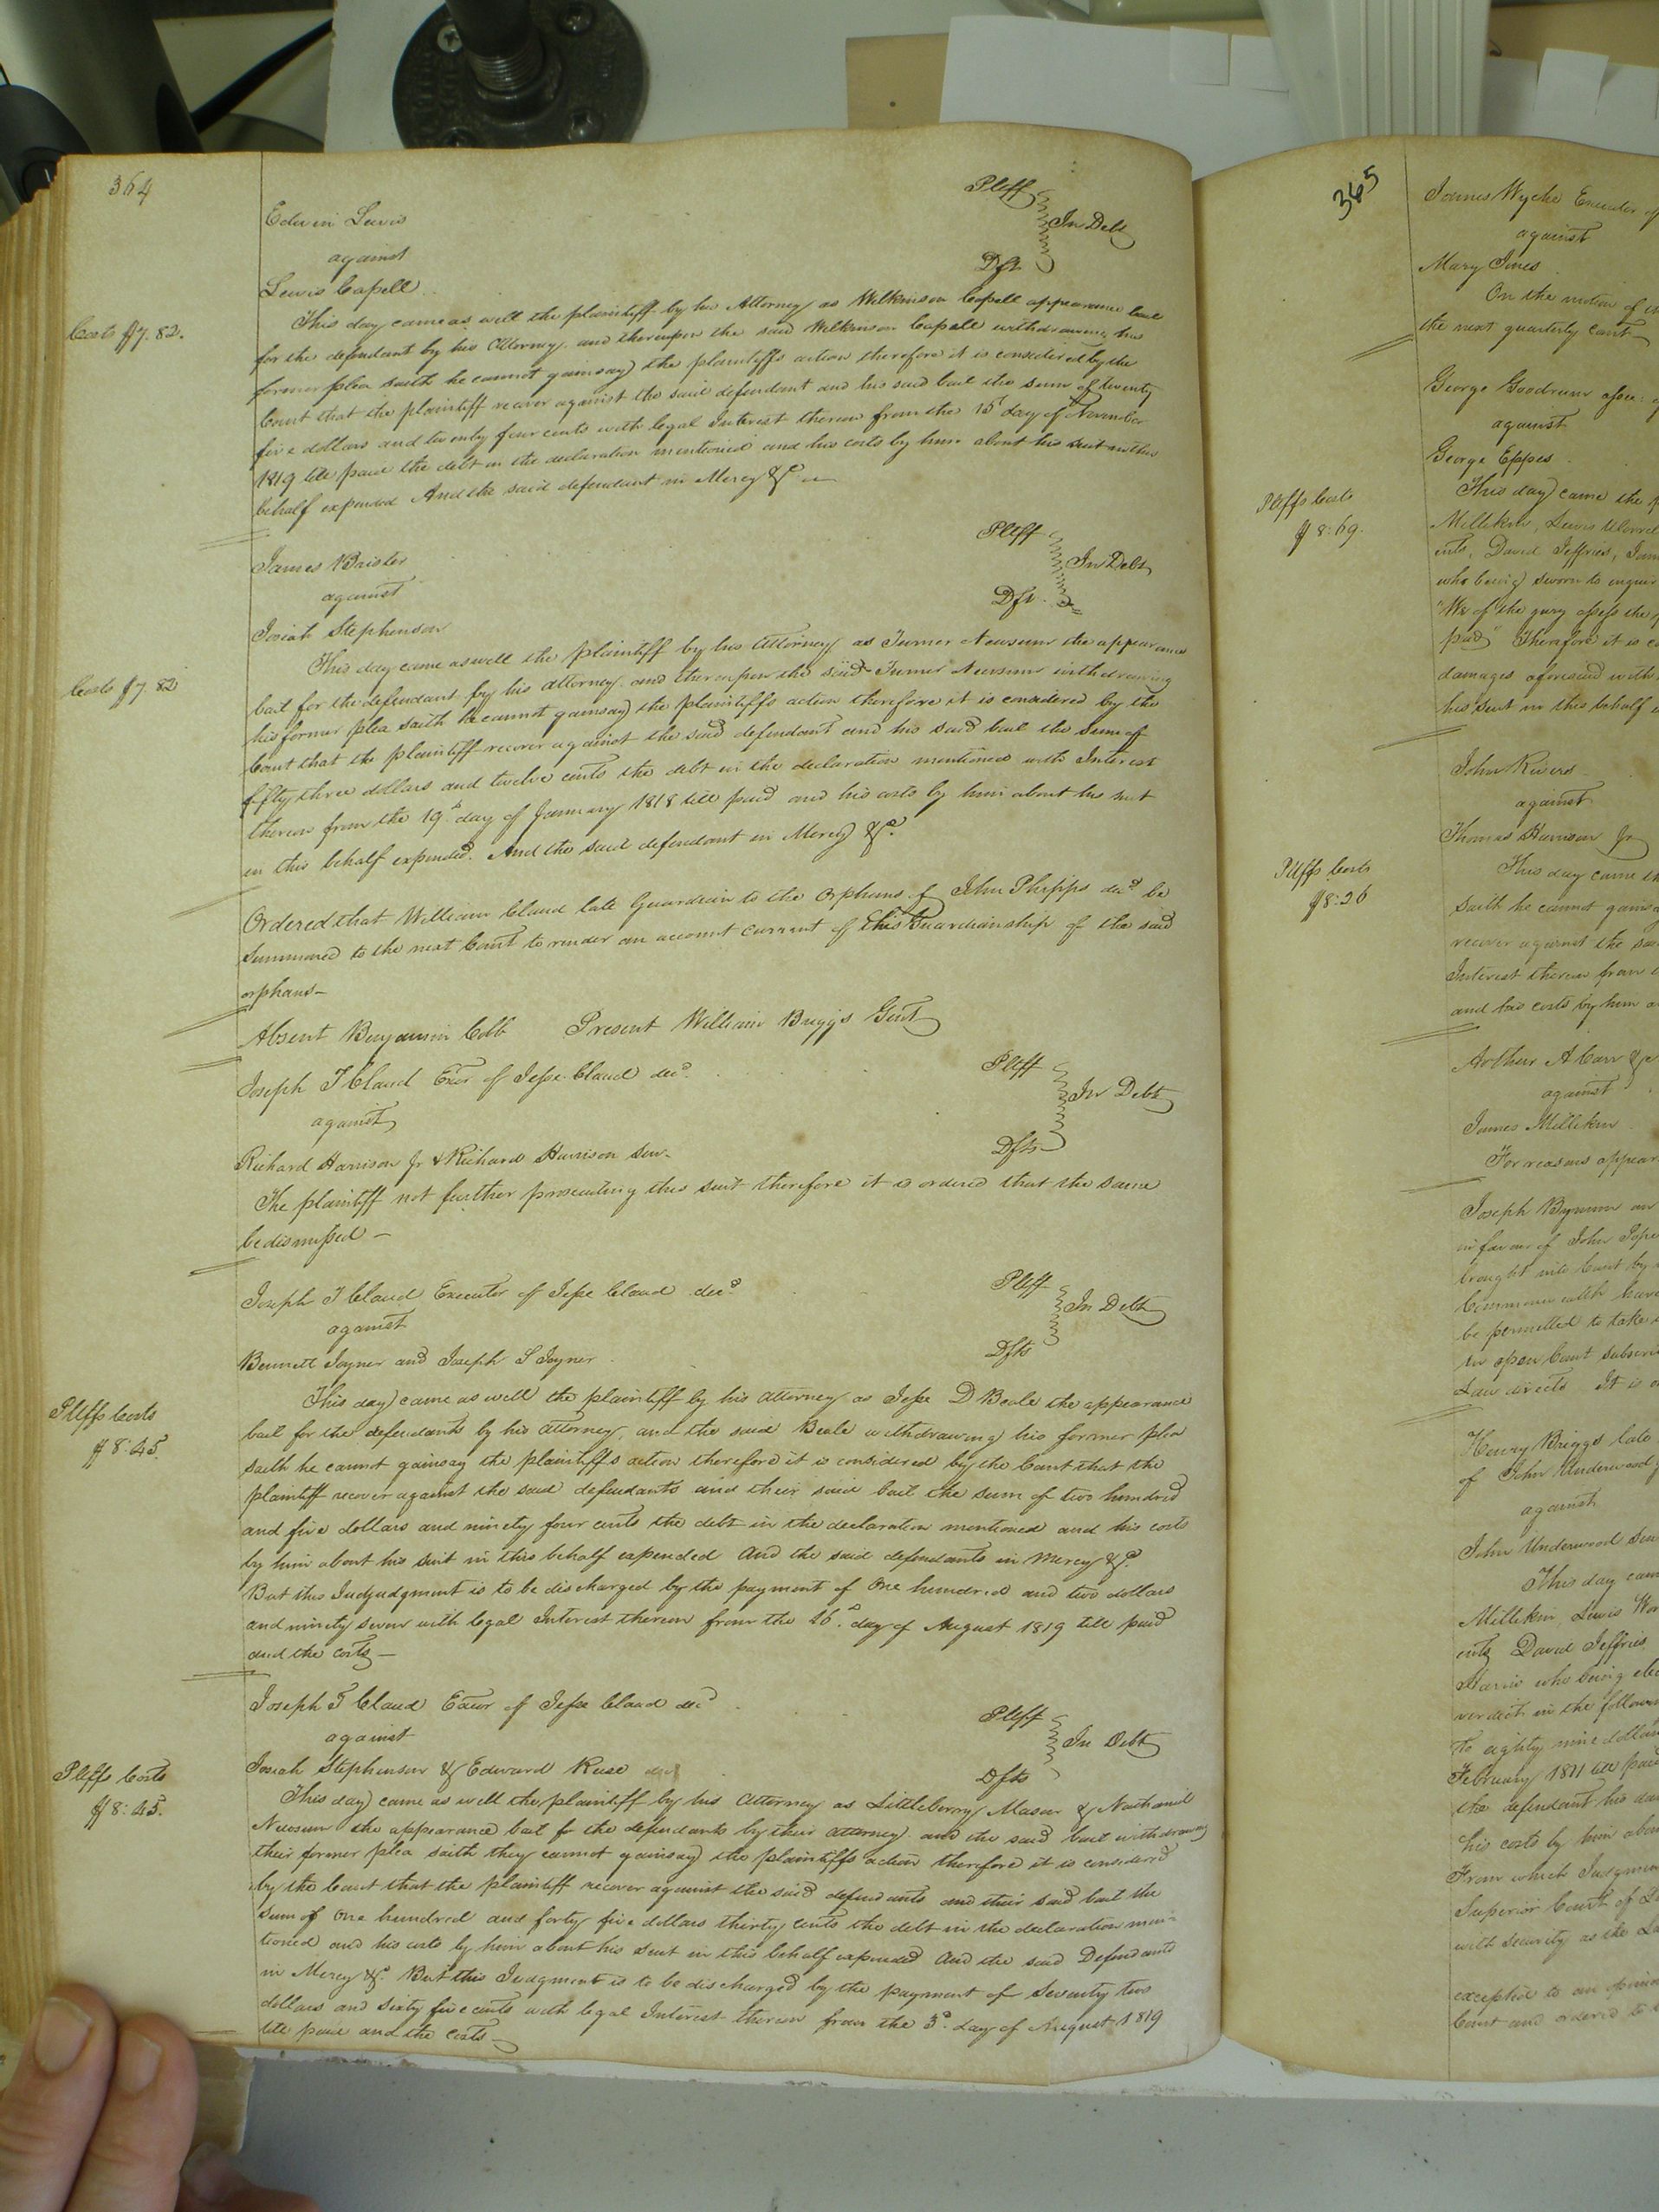 364
Edwin Lewis Pltff
against In Debt
Lewis Capell Dft
Costs $7.82.
This day came as well the plaintiff by his Attorney as Wilkinson Capell appearance bail
for the defendant by his Attorney. and thereupon the said Wilkinson Capell withdrawing his
former plea saith he cannot gainsay the plaintiffs action therefore it is considered by the
Court that the plaintiff recover against the said defendant and his said bail the sum of twenty
five dollars and twenty four cents with legal Interest thereon from the 15th day of November
1819 till paid the debt in the declaration mentioned and his costs by him about his suit in this
behalf expended And the said defendant in Mercy &c
James Baister Pltff
against In Debt
Josiah Stephenson Dft.
Costs $7.82
This day came as well the plaintiff by his attorney as Turner Newsum the appearance
bail for the defendant by his attorney. and thereupon the said Turner Newsum withdrawing
his former plea saith he cannot gainsay the plaintiffs action therefore it is considered by the
Court that the plaintiff recover against the said defendant and his said bail the sum of
fifty three dollars and twelve cents the debt in the declaration mentioned with Interest
thereon from the 19th day of January 1818 till paid and his costs by him about his suit
in this behalf expended. And the said defendant in Mercy &c.
Ordered that William Claud late Guardian to the Orphans of John Phipps decd be
Summoned to the next Court to render an account current of his Guardianship of the said
orphans—
Absent Benjamin Cobb Present William Briggs Gent
Joseph T Claud Exor of Jesse Claud decd. Pltff
against In Debt
Richard Harrison Jr & Richard Harrison Senr Dfts
The plaintiff not further prosecuting this suit therefore it is ordered that the same
be dismissed —
Joseph T Claud Executor of Jesse Claud decd Pltff
against In Debt
Bennett Joyner and Joseph S Joyner Dfts
Pltffs Costs
$8:45.
This day came as well the plaintiff by his attorney as Jesse D Beale the appearance
bail for the defendants by his attorney, and the said Beale withdrawing his former plea
saith he cannot gainsay the plaintiffs action therefore it is considered by the Court that the
plaintiff recover against the said defendants and their said bail the sum of two hundred
and five dollars and ninety four cents the debt in the declaration mentioned and his costs
by him about his suit in this behalf expended And the said defendants in Mercy &c.
But this Judjudgment is to be discharged by the payment of One hundred and two dollars
and ninety seven with legal Interest thereon from the 16th. day of August 1819 till paid
and the costs —
Joseph T Claud Exor of Jesse Claud decd Pltff
against In Debt
Josiah Stephenson & Edward Ruse Dfts
Pltffs Costs
$8:45.
This day came as well the plaintiff by his Attorney as Littleberry Mason & Nathaniel
Newsum the appearance bail for the defendants by their attorney. and the said bail withdrawing
their former plea saith they cannot gainsay the plaintiffs action therefore it is considered
by the Court that the plaintiff recover against the said defendants and their said bail the
sum of One hundred and forty five dollars thirty cents the debt in the declaration men=
tioned and his costs by him about his suit in this behalf expended And the said Defendants
in Mercy &c. But this Judgment is to be discharged by the payment of Seventy two
dollars and sixty five cents with legal Interest thereon from the 3d. day of August 1819
till paid and the costs —
365
James Wyche Executor of
against
Mary Jones
On the motion of
the next quarterly Court—
George Goodrum assee: of
against
George Eppes
Pltffs Costs
$8:69.
This day came the
Millikin, Lewis
ents, David Jeffries, Jam
who being sworn to enquir
"We of the jury assess the
paid" Therefore it is
damages aforesaid with
his suit in this behalf
John Rivers
against
Thomas Harrison Jr
Pltffs Costs
$8:26
This day came th
saith he cannot gains
recover against the sa
Interest thereon from
and his costs by him a
Arthur A Carr &c
against
James Millikin
For reasons appear
Joseph Bynum an
in favour of John Pope
brought into Court by
Commonwealth have
be permitted to take
in open Court subscri
Law directs It is
Henry Briggs late
of John Underwood
against
John Underwood Sen
This day cam
Millikin, Lewis Wor
ents David Jeffries,
Harris who being ele
verdict in the follow
to eighty nine dolla
February 1811 till paid
the defendant his da
his costs by him abou
From which Judgmen
Superior Court of L
with Security as the La
excepted to an opini
Court and ordered to